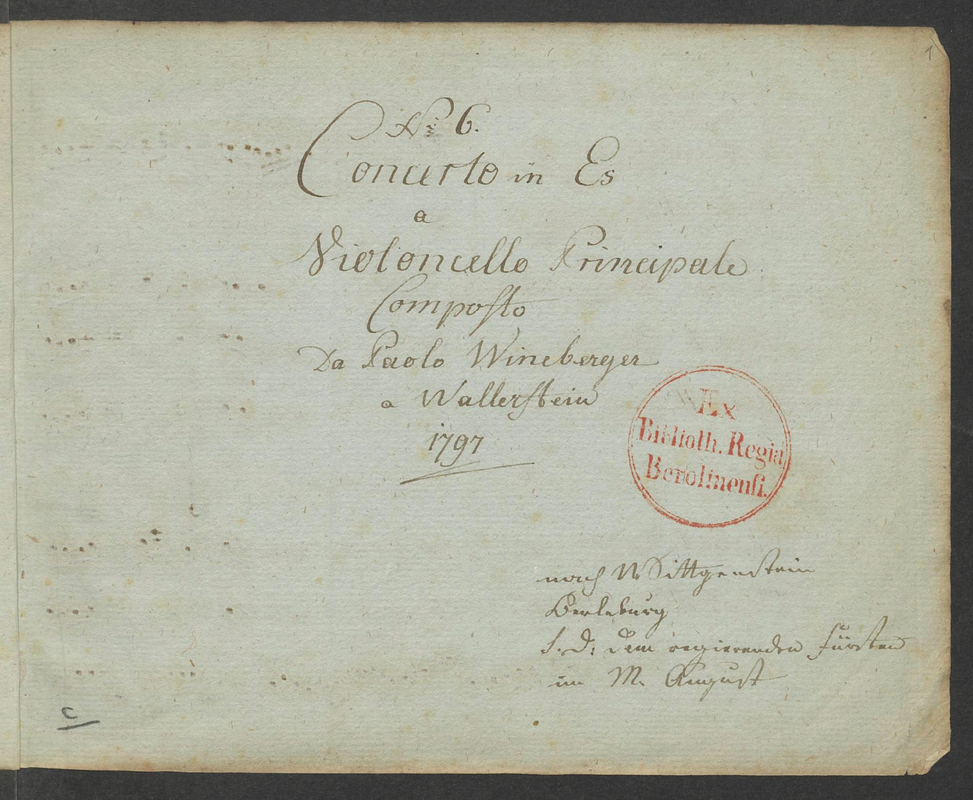 1
No 6.
Concerto in Es
a
Violoncello Principale
Composto
Da Paolo Wineberger
a Wallerstein
1797
Ex
Biblioth. Regia
Berolinensi.
nach Wittgenstein
Berleburg
S. D. dem regierenden Fürsten
im M. August
c